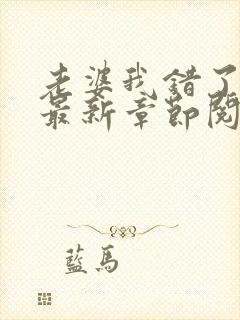 老婆我错了
最新章節閱
藍馬